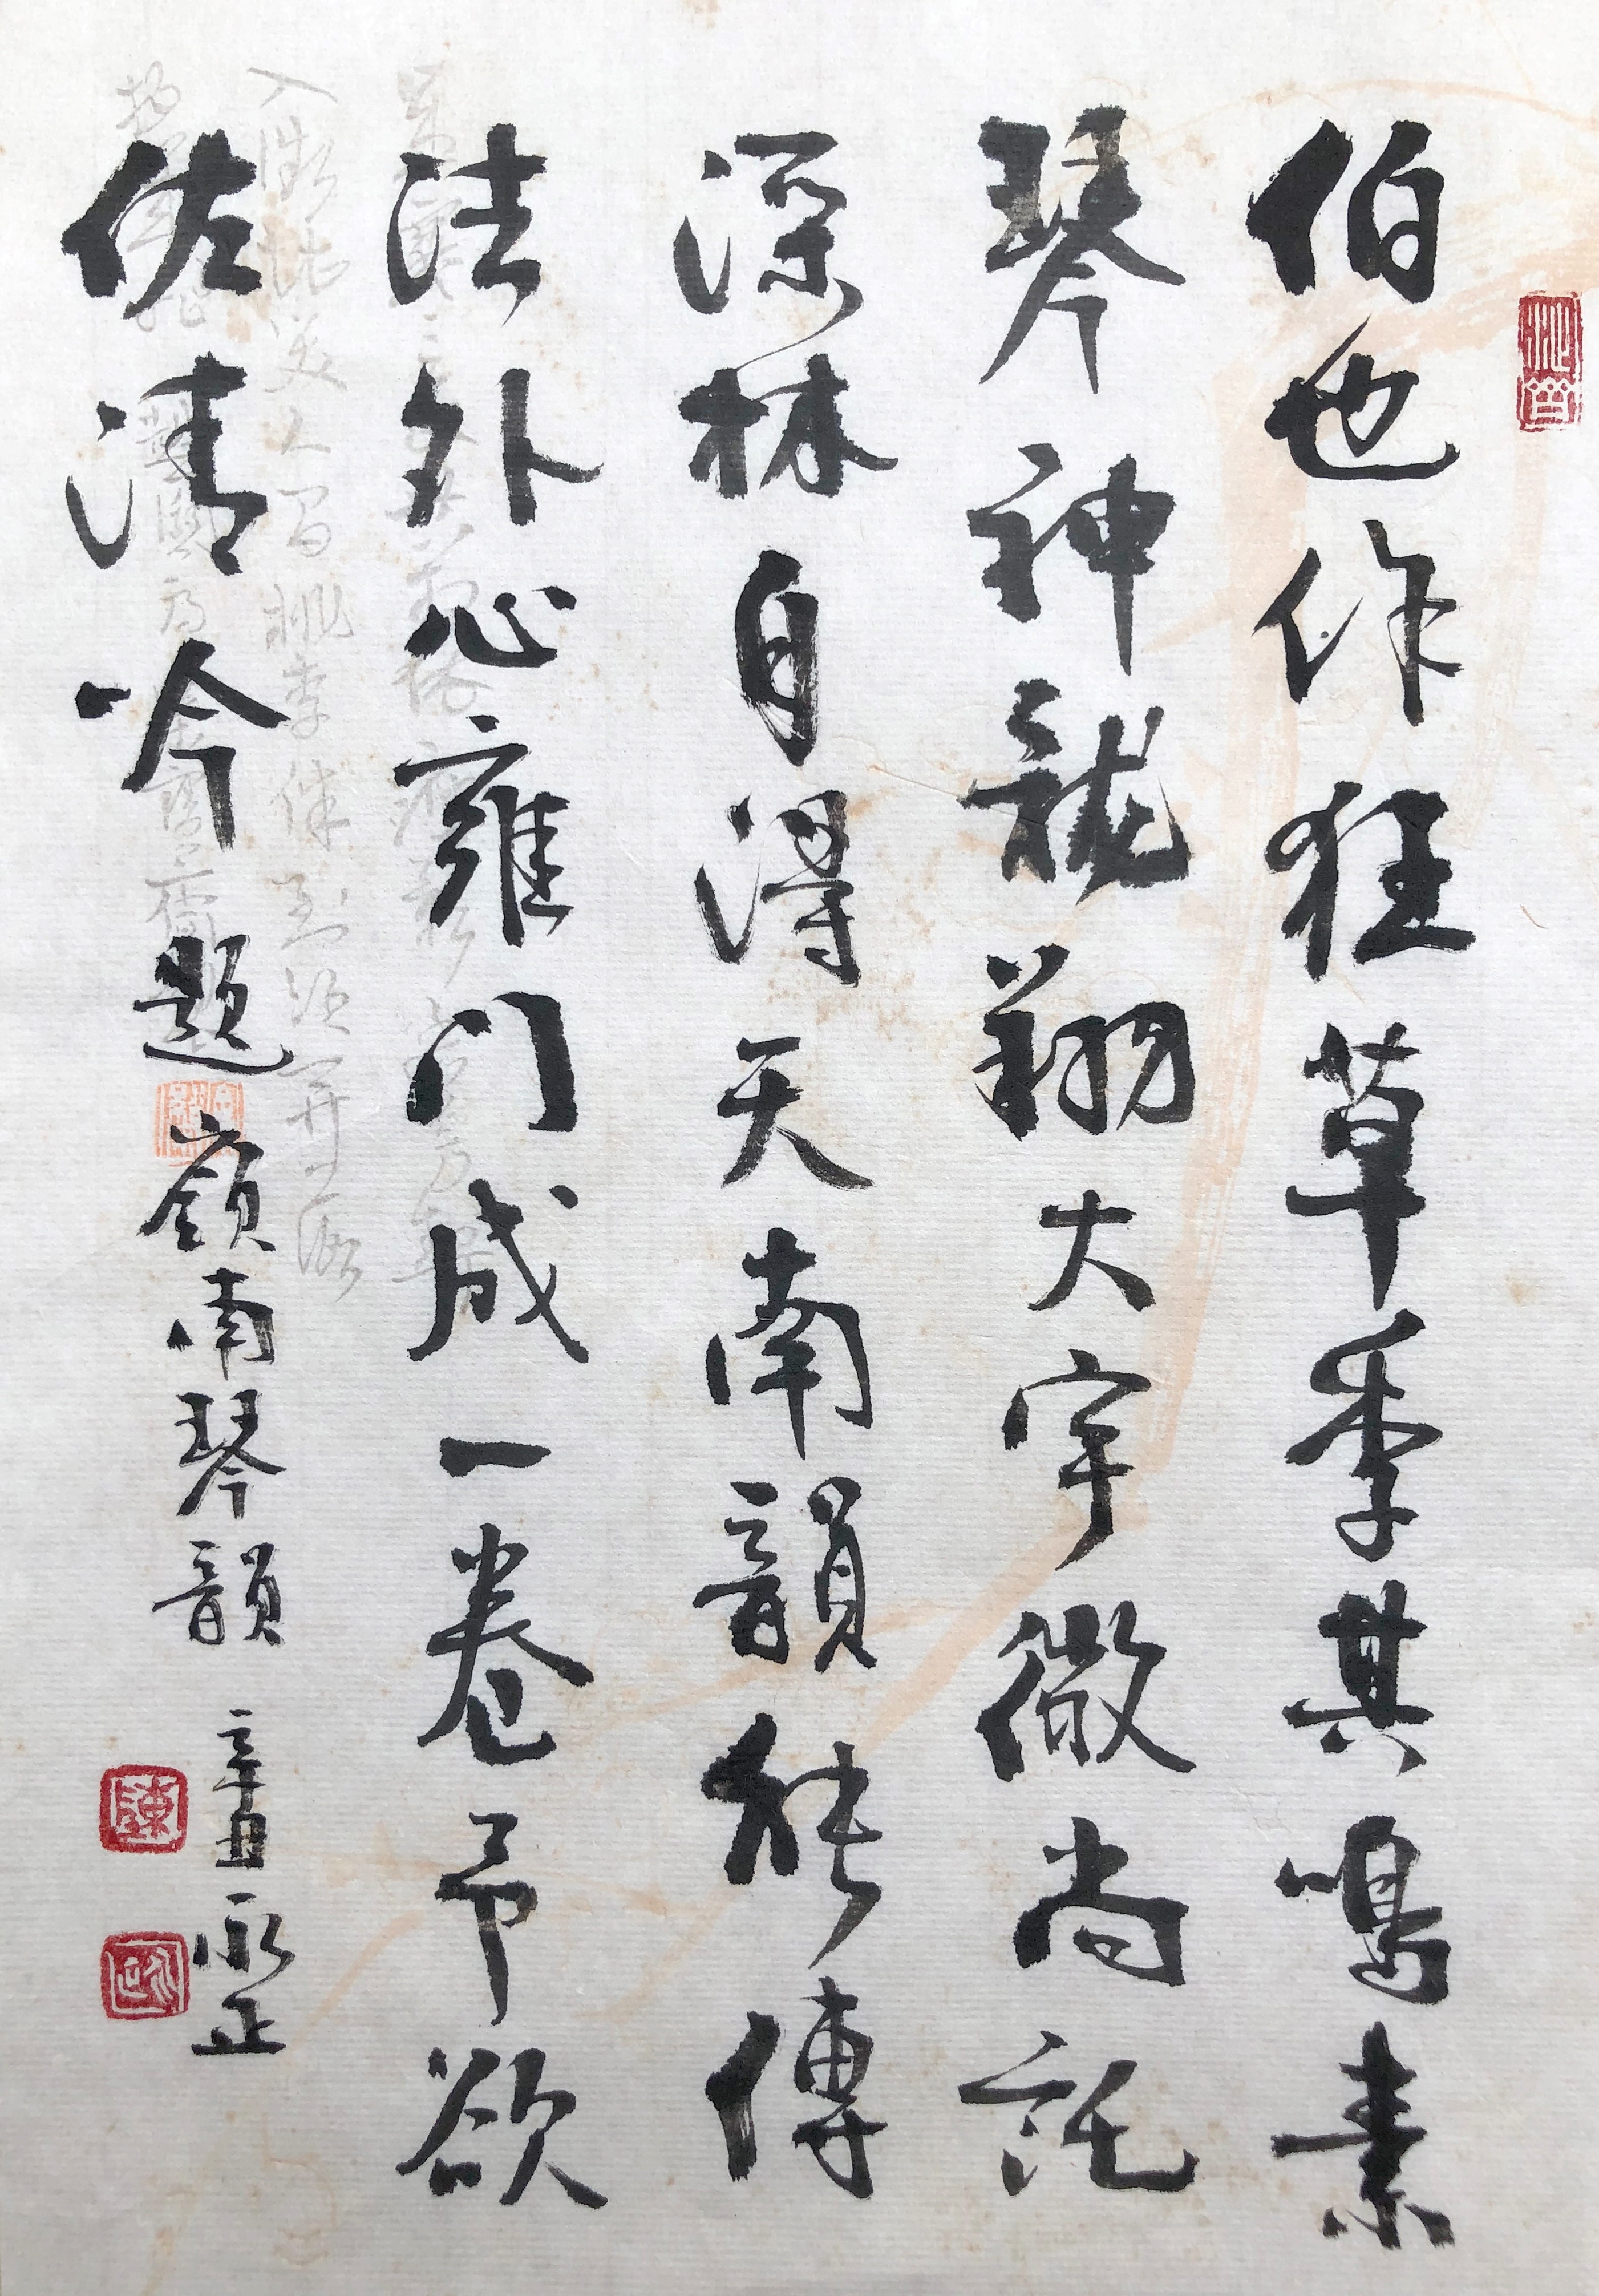 伯也作狂草季其鳴素
琴神龍翔大宇微尚託
深林自得天南韻能傳
法外心雍门成一卷予欲
佐清吟題嶺南琴韻
辛丑永正
陳